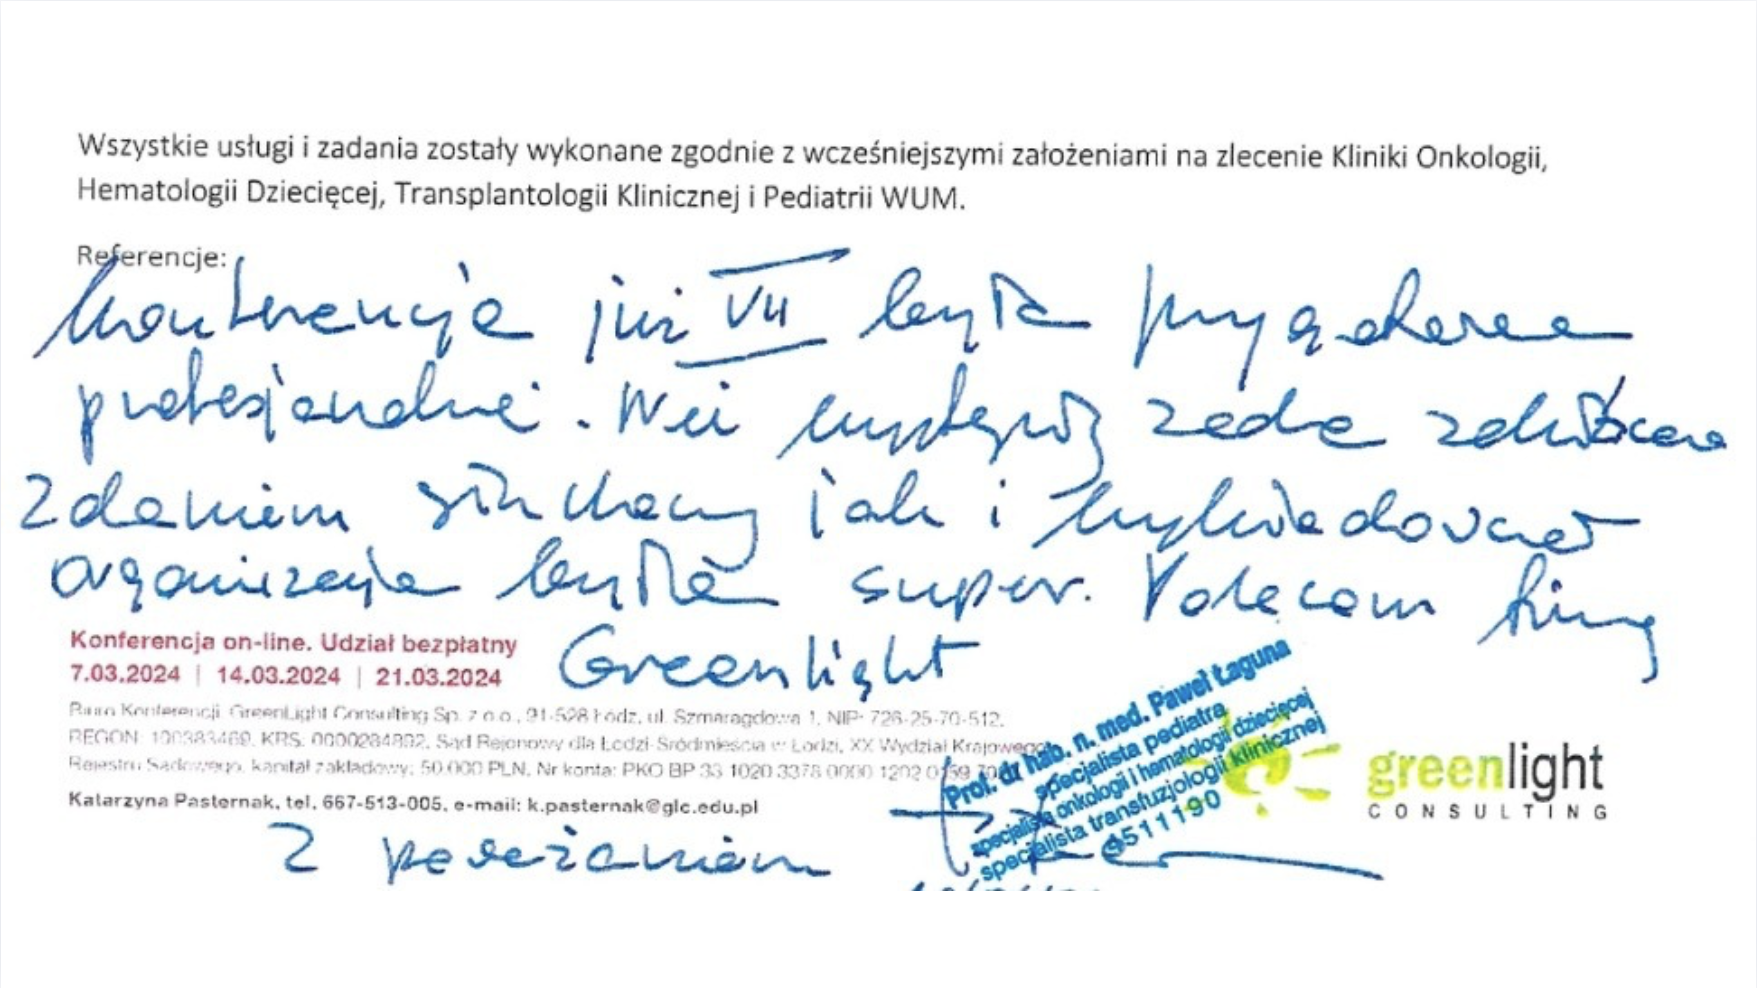 Wszystkie usługi i zadania zostały wykonane zgodnie z wcześniejszymi założeniami na zlecenie Kliniki Onkologii,
Hematologii Dziecięcej, Transplantologii Klinicznej i Pediatrii WUM.
Referencje:
Konferencja już VII była przygotowana
profesjonalnie. Nie wystąpiły żadne zakłócenia
Zdaniem słuchaczy jak i wykładowców
organizacja była super. Polecam firmę
Greenlight
Konferencja on-line. Udział bezpłatny
7.03.2024 | 14.03.2024 | 21.03.2024
Biuro Konferencji GreenLight Consulting Sp. z o.o., 91-528 Łódź, ul. Szmaragdowa 1, NIP- 726-25-70-512,
REGON: 100383469, KRS. 0000284892, Sąd Rejonowy dla Łodzi-Śródmieścia w Łodzi, XX Wydział Krajowego
Rejestru Sądowego, kapitał zakładowy: 50.000 PLN, Nr konta: PKO BP 33 1020 3378 0000 1202
Katarzyna Pasternak, tel. 667-513-005, e-mail: k.pasternak@glc.edu.pl
Prof. dr hab. n. med. Paweł Łaguna
specjalista pediatra
specjalista onkologii i hematologii dziecięcej
specjalista transfuzjologii klinicznej
greenlight
CONSULTING
Z poważaniem